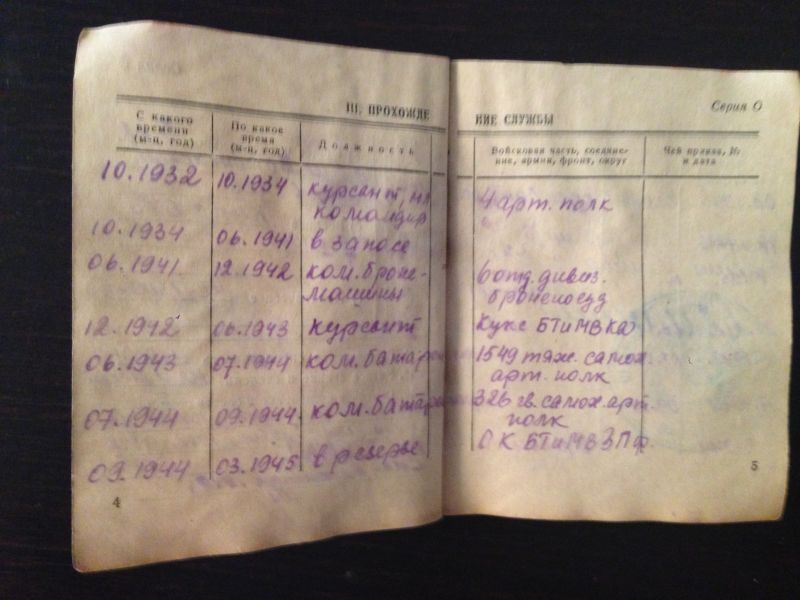 III. ПРОХОЖДЕ
НИЕ СЛУЖБЫ
Серия О
С какого времени (м-ц, год)
По какое время (м-ц, год)
Должность
Войсковая часть, соединение, армия, фронт, округ
Чей приказ, № и дата
10.1932 10.1934 курсант, мл. командир 4 арт. полк
10.1934 06.1941 в запасе
06.1941. 12.1942 ком. броне-машины 6 отд. дивиз. бронепоезд
12.1942 06.1943 курсант БТиМВ
06.1943 07.1944 ком. 1549 тяж. самох. арт. полк
07.1944 09.1944. ком. 326 гв. самох. арт. полк
09.1944 03.1945 в резерве ОК БТиМВ
4
5